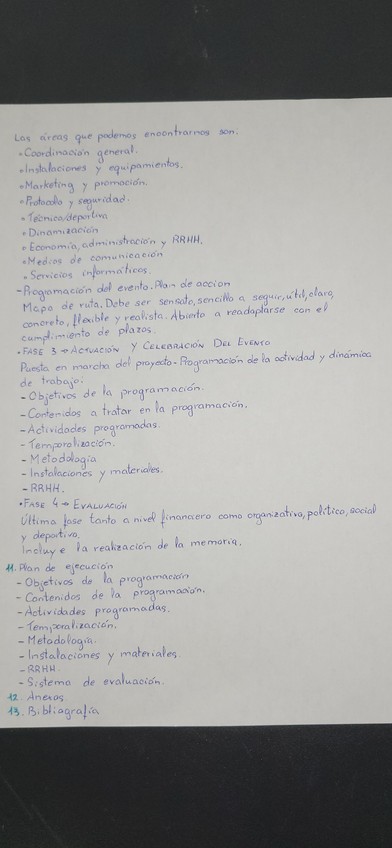 Las áreas que podemos encontrarnos son:
• Coordinación general.
• Instalaciones y equipamientos.
• Marketing y promoción.
• Protocolo y seguridad.
• Técnica/deportiva
• Dinamización
• Economía, administración y RRHH.
• Medios de comunicación
• Servicios informáticos.
- Programación del evento. Plan de acción
Mapa de ruta. Debe ser sensato, sencillo a seguir, útil, claro,
concreto, flexible y realista. Abierto a readaptarse con el
cumplimiento de plazos.
• FASE 3 → ACTUACIÓN Y CELEBRACIÓN DEL EVENTO
Puesta en marcha del proyecto - Programación de la actividad y dinámica
de trabajo:
- Objetivos de la programación.
- Contenidos a tratar en la programación.
- Actividades programadas.
- Temporalización.
- Metodología
- Instalaciones y materiales.
- RRHH.
• FASE 4 → EVALUACIÓN
Última fase tanto a nivel financiero como organizativo, político, social
y deportivo.
Incluye la realización de la memoria.
11. Plan de ejecución
- Objetivos de la programación
- Contenidos de la programación.
- Actividades programadas.
- Temporalización.
- Metodología.
- Instalaciones y materiales.
- RRHH.
- Sistema de evaluación.
12. Anexos
13. Bibliografía